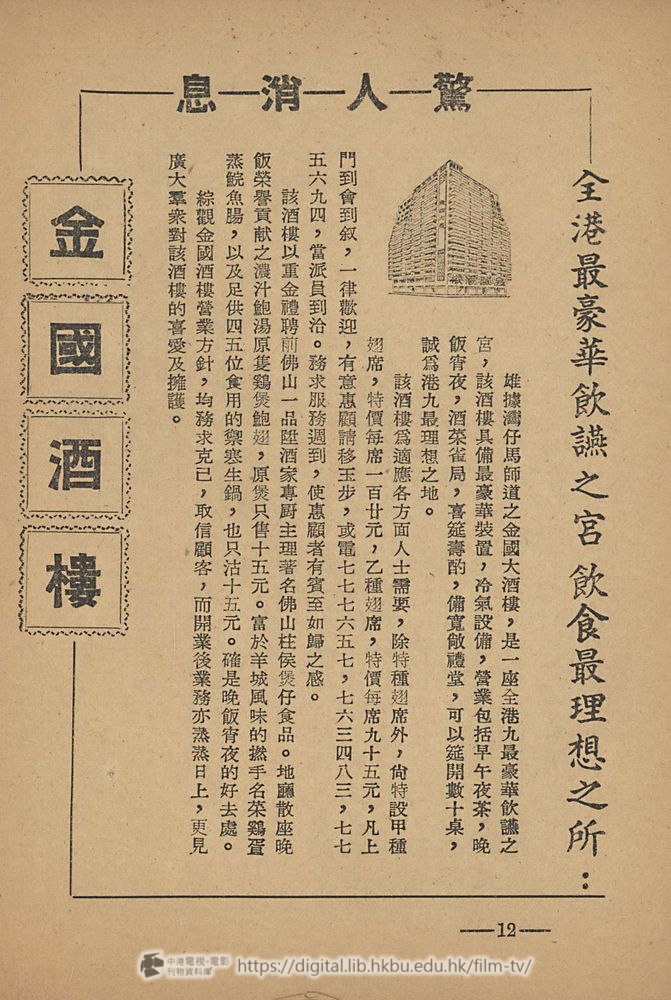 驚人消息
全港最豪華飲讌之宮 飲食最理想之所：
雄據灣仔馬師道之金國大酒樓，是一座全港九最豪華飲讌之
宮，該酒樓具備最豪華裝置，冷氣設備，營業包括早午夜茶，晚
飯宵夜，酒菜雀局，喜筵壽酌，備寬敞禮堂，可以筵開數十桌，
誠爲港九最理想之地。
該酒樓爲適應各方面人士需要，除特種翅席外，尙特設甲種
翅席，特價每席一百廿元，乙種翅席，特價每席九十五元，凡上
門到會到叙，一律歡迎，有意惠顧請移玉步，或電七七七六五七，七六三四八三，七七
五六九四，當派員到洽。務求服務週到，使惠顧者有賓至如歸之感。
該酒樓以重金禮聘前佛山一品陞酒家專厨主理著名佛山柱侯煲仔食品。地廳散座晚
飯榮譽貢献之濃汁鮑湯原隻鷄煲鮑翅，原煲只售十五元。富於羊城風味的撚手名菜鷄蛋
蒸鯇魚腸，以及足供四五位食用的禦寒生鍋，也只沽十五元。確是晚飯宵夜的好去處。
綜觀金國酒樓營業方針，均務求克己，取信顧客，而開業後業務亦蒸蒸日上，更見
廣大羣衆對該酒樓的喜愛及擁護。
金國酒樓
—12—
中港電視·電影
刊物資料庫
https://digital.lib.hkbu.edu.hk/film-tv/